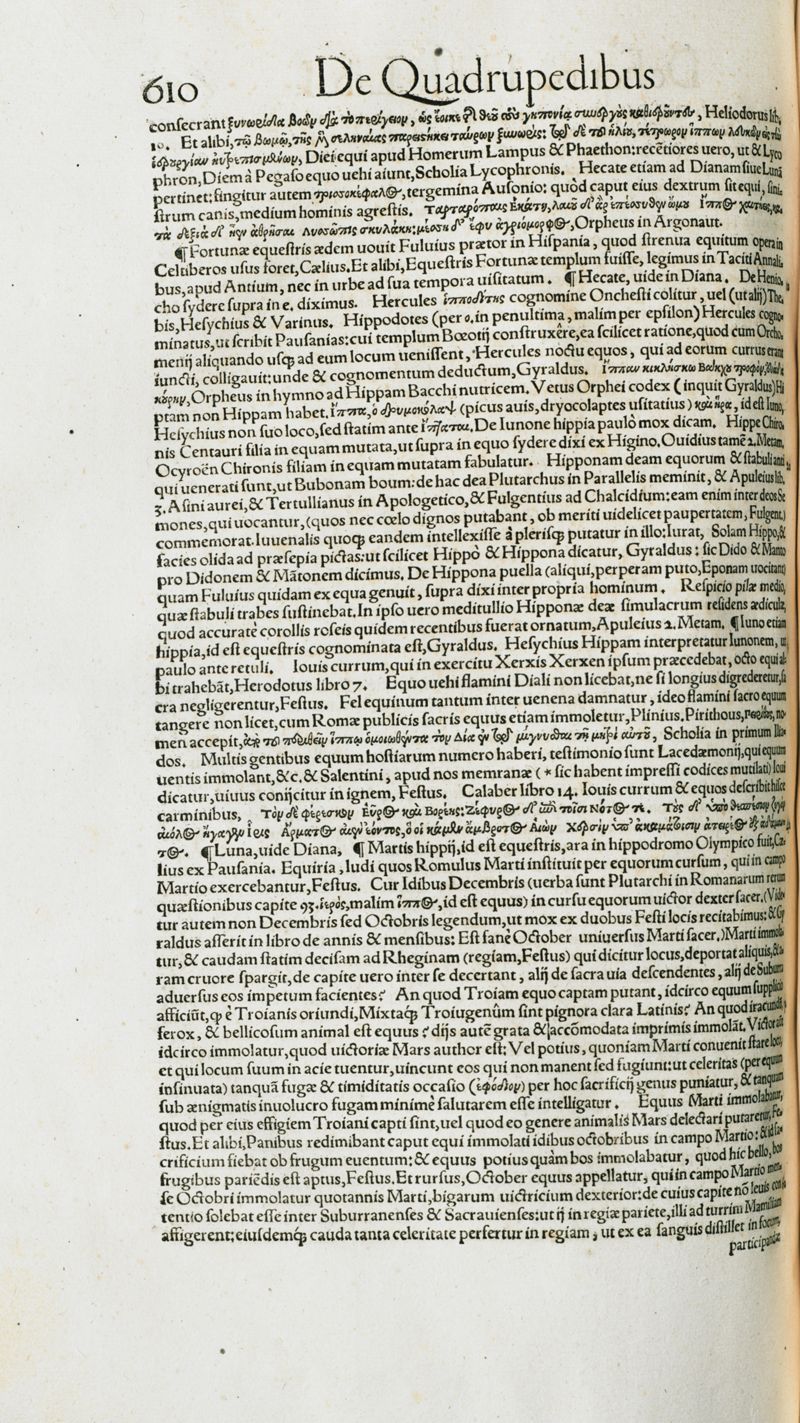 610 De Quadrupedibus
consecrant ξυνωείδα βοῶν διὰ τὸ περίγειον, Heliodorus lib.
10. Et alibi, τῷ βωμῷ, τῆς
Dici equi apud Homerum Lampus & Phaethon: recẽtiores uero, ut & Lyco
phron, Diem à Pegaso equo uehi aiunt, Scholia Lycophronis. Hecate etiam ad Dianam siue Lunã
pertinet: fingitur autem τρισσοκέφαλος, tergemina Ausonio: quòd caput eius dextrum sit equi, sini,
strum canis, medium hominis agrestis. Ταρταρόπαις Ἑκάτη, λαιᾶς
Orpheus in Argonaut.
¶ Fortunæ equestris ædem uouit Fuluius prætor in Hispania, quod strenua equitum opera in
Celtiberos usus foret, Cælius. Et alibi, Equestris Fortunæ templum fuisse, legimus in Taciti Annali,
bus, apud Antium, nec in urbe ad sua tempora uisitatum. ¶ Hecate, uide in Diana. De Henio,
cho sydere supra in e. diximus. Hercules ἱπποδέτης cognomine Onchesti colitur, uel (ut alij) The,
bis, Hesychius & Varinus. Hippodotes (per o. in penultima, malim per epsilon) Hercules cogno,
minatus, ut scribit Pausanias: cui templum Bœotij construxêre, ea scilicet ratione, quod cum Orcho,
menij aliquando usq; ad eum locum uenissent, Hercules nodu equos, qui ad eorum currus erant
iuncti, colligauit: unde & cognomentum deductum, Gyraldus. Ἵππαν κικλήσκω Βάκχου τροφὸν,
κούρην, Orpheus in hymno ad Hippam Bacchi nutricem. Vetus Orphei codex (inquit Gyraldus) Hi
ptam non Hippam habet. Ἵππα, ὁ δρυμοκόλαψ (picus auis, dryocolaptes usitatius) καὶ ἥρα, id est Iuno,
Hesychius non suo loco, sed statim ante ἵπταται. De Iunone hippia paulò mox dicam. Hippe Chiro,
nis Centauri filia in equam mutata, ut supra in equo sydere dixi ex Higino. Ouidius tamẽ 2. Metam.
Ocyroën Chironis filiam in equam mutatam fabulatur. Hipponam deam equorum & stabuli anti,
qui uenerati sunt, ut Bubonam boum: de hac dea Plutarchus in Parallelis meminit, & Apuleius lib.
3. Asini aurei, & Tertullianus in Apologetico, & Fulgentius ad Chalcidium: eam enim inter deos Se
mones, qui uocantur, (quos nec cœlo dignos putabant, ob meriti uidelicet paupertatem, Fulgent.)
commemorat. Iuuenalis quoq; eandem intellexisse à plerisq; putatur in illo: Iurat, Solam Hippo, &
facies olida ad præsepia pictas: ut scilicet Hippò & Hippona dicatur, Gyraldus: sic Dido & Manto
pro Didonem & Mãtonem dicimus. De Hippona puella (aliqui, perperam puto, Eponam uocitant)
quam Fuluius quidam ex equa genuit, supra dixi inter propria hominum. Respicio pilæ mediæ,
quæ stabuli trabes sustinebat. In ipso uero meditullio Hipponæ deæ simulacrum residens ædiculæ,
quod accuratè corollis roseis quidem recentibus fuerat ornatum, Apuleius 2. Metam. ¶ Iuno etiam
hippia, id est equestris cognominata est, Gyraldus. Hesychius Hippam interpretatur Iunonem, ut
paulo ante retuli. Iouis currum, qui in exercitu Xerxis Xerxen ipsum præcedebat, octo equi al,
bi trahebãt, Herodotus libro 7. Equo uehi flamini Diali non licebat, ne si longius digrederetur, sa
cra negligerentur, Festus. Fel equinum tantum inter uenena damnatur, ideo flamini sacro equum
tangere non licet, cum Romæ publicis sacris equus etiam immoletur, Plinius. Pirithous, no,
men accepit, Scholia in primum Ilia,
dos. Multis gentibus equum hostiarum numero haberi, testimonio sunt Lacedæmonij, qui equum
uentis immolant, &c. & Salentini, apud nos memranæ (* sic habent impressi codices mutilati) Ioui
dicatur, uiuus conijcitur in ignem, Festus. Calaber libro 14. Iouis currum & equos describit his
carminibus,
¶ Luna, uide Diana. ¶ Martis hippij, id est equestris, ara in hippodromo Olympico fuit, Cæ
lius ex Pausania. Equiria, ludi quos Romulus Marti instituit per equorum cursum, qui in campo
Martio exercebantur, Festus. Cur Idibus Decembris (uerba sunt Plutarchi in Romanarum rerum
quæstionibus capite 93. ἱερός, malim ἵππος, id est equus) in cursu equorum uictor dexter sacer. (Vide
tur autem non Decembris sed Octobris legendum, ut mox ex duobus Festi locis recitabimus: & Gy
raldus asserit in libro de annis & mensibus: Est sanè October uniuersus Marti sacer.) Marti immola
tur, & caudam statim decisam ad Rheginam (regiam, Festus) qui dicitur locus, deportat aliquis, &
ram cruore spargit, de capite uero inter se decertant, alij de sacra uia descendentes, alij de Subura
aduersus eos impetum facientes? An quod Troiam equo captam putant, idcirco equum supplicio
afficiũt, q̃ è Troianis oriundi, Mixtaq; Troiugenûm sint pignora clara Latinis? An quod iracundũ
ferox, & bellicosum animal est equus? dijs autẽ grata & accõmodata imprimis immolãt, Victor
idcirco immolatur, quod uictoriæ Mars author est; Vel potius, quoniam Marti conuenit stare loco,
et qui locum suum in acie tuentur, uincunt eos qui non manent sed fugiunt: ut celeritas (per equum
insinuata) tanquã fugæ & timiditatis occasio (ἐφόδιον) per hoc sacrificij genus puniatur, & tanquam
sub ænigmatis inuolucro fugam minimè salutarem esse intelligatur. Equus Marti immolabatur,
quod per eius effigiem Troiani capti sint, uel quod eo genere animalis Mars delectari putaretur, Fe
stus. Et alibi, Panibus redimibant caput equi immolati idibus octobribus in campo Martio: & id sa
crificium fiebat ob frugum euentum: & equus potius quàm bos immolabatur, quod hic bello, bos
frugibus pariẽdis est aptus, Festus. Et rursus, October equus appellatur, qui in campo Martio men
se Octobri immolatur quotannis Marti, bigarum uictricium dexterior: de cuius capite nõ leuis con
tentio solebat esse inter Suburranenses & Sacrauienses: ut ij in regiæ pariete, illi ad turrim Mamiliam
affigerent; eiusdemq; cauda tanta celeritate perfertur in regiam, ut ex ea sanguis distillet in focum,
participandæ